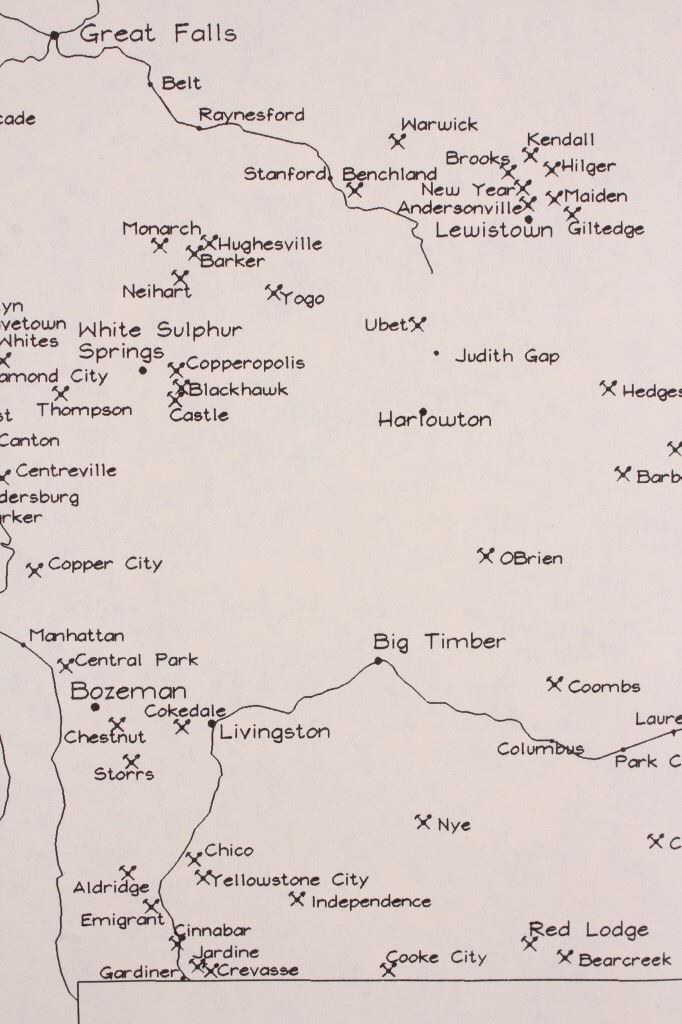 Great Falls
Belt
Raynesford
cade
Warwick
Kendall
Brooks
Hilger
Stanford
Benchland
New Year
Maiden
Andersonville
Lewistown
Giltedge
Monarch
Hughesville
Barker
Neihart
Yogo
yn
vetown
Whites
White Sulphur
Springs
Ubet
Judith Gap
Copperopolis
amond City
Blackhawk
Hedges
st
Thompson
Castle
Harlowton
Canton
Centreville
Barb
dersburg
rker
OBrien
Copper City
Manhattan
Big Timber
Central Park
Bozeman
Coombs
Cokedale
Laure
Chestnut
Livingston
Columbus
Park C
Storrs
Nye
C
Chico
Aldridge
Yellowstone City
Independence
Emigrant
Cinnabar
Red Lodge
Jardine
Cooke City
Bearcreek
Gardiner
Crevasse